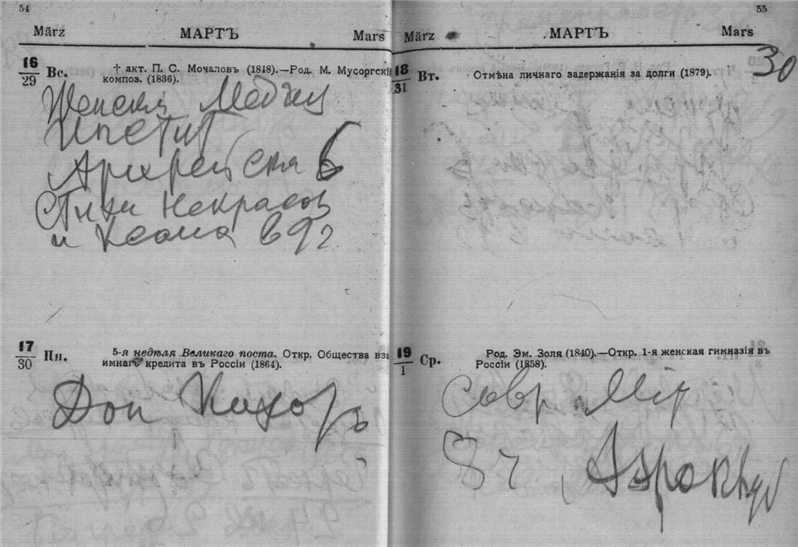 54
März МАРТЪ Mars
16
29 Вс. † акт. П. С. Мочаловъ (1848).—Род. М. Мусоргскі
композ. (1836).
Женски Медиц
Архирейская 6
Стихи Некрасов
и в 9 г
17
30 Пн. 5-я недѣля Великаго поста. Откр. Общества вза
имнаго кредита въ Россіи (1864).
Дон Кихотъ
55
März МАРТЪ Mars
30
18
31 Вт. Отмѣна личнаго задержанія за долги (1879).
19
1 Ср. Род. Эм. Золя (1840).—Откр. 1-я женская гимназія въ
Россіи (1858).
Совр. Мір
8 ч. Аэроклуб